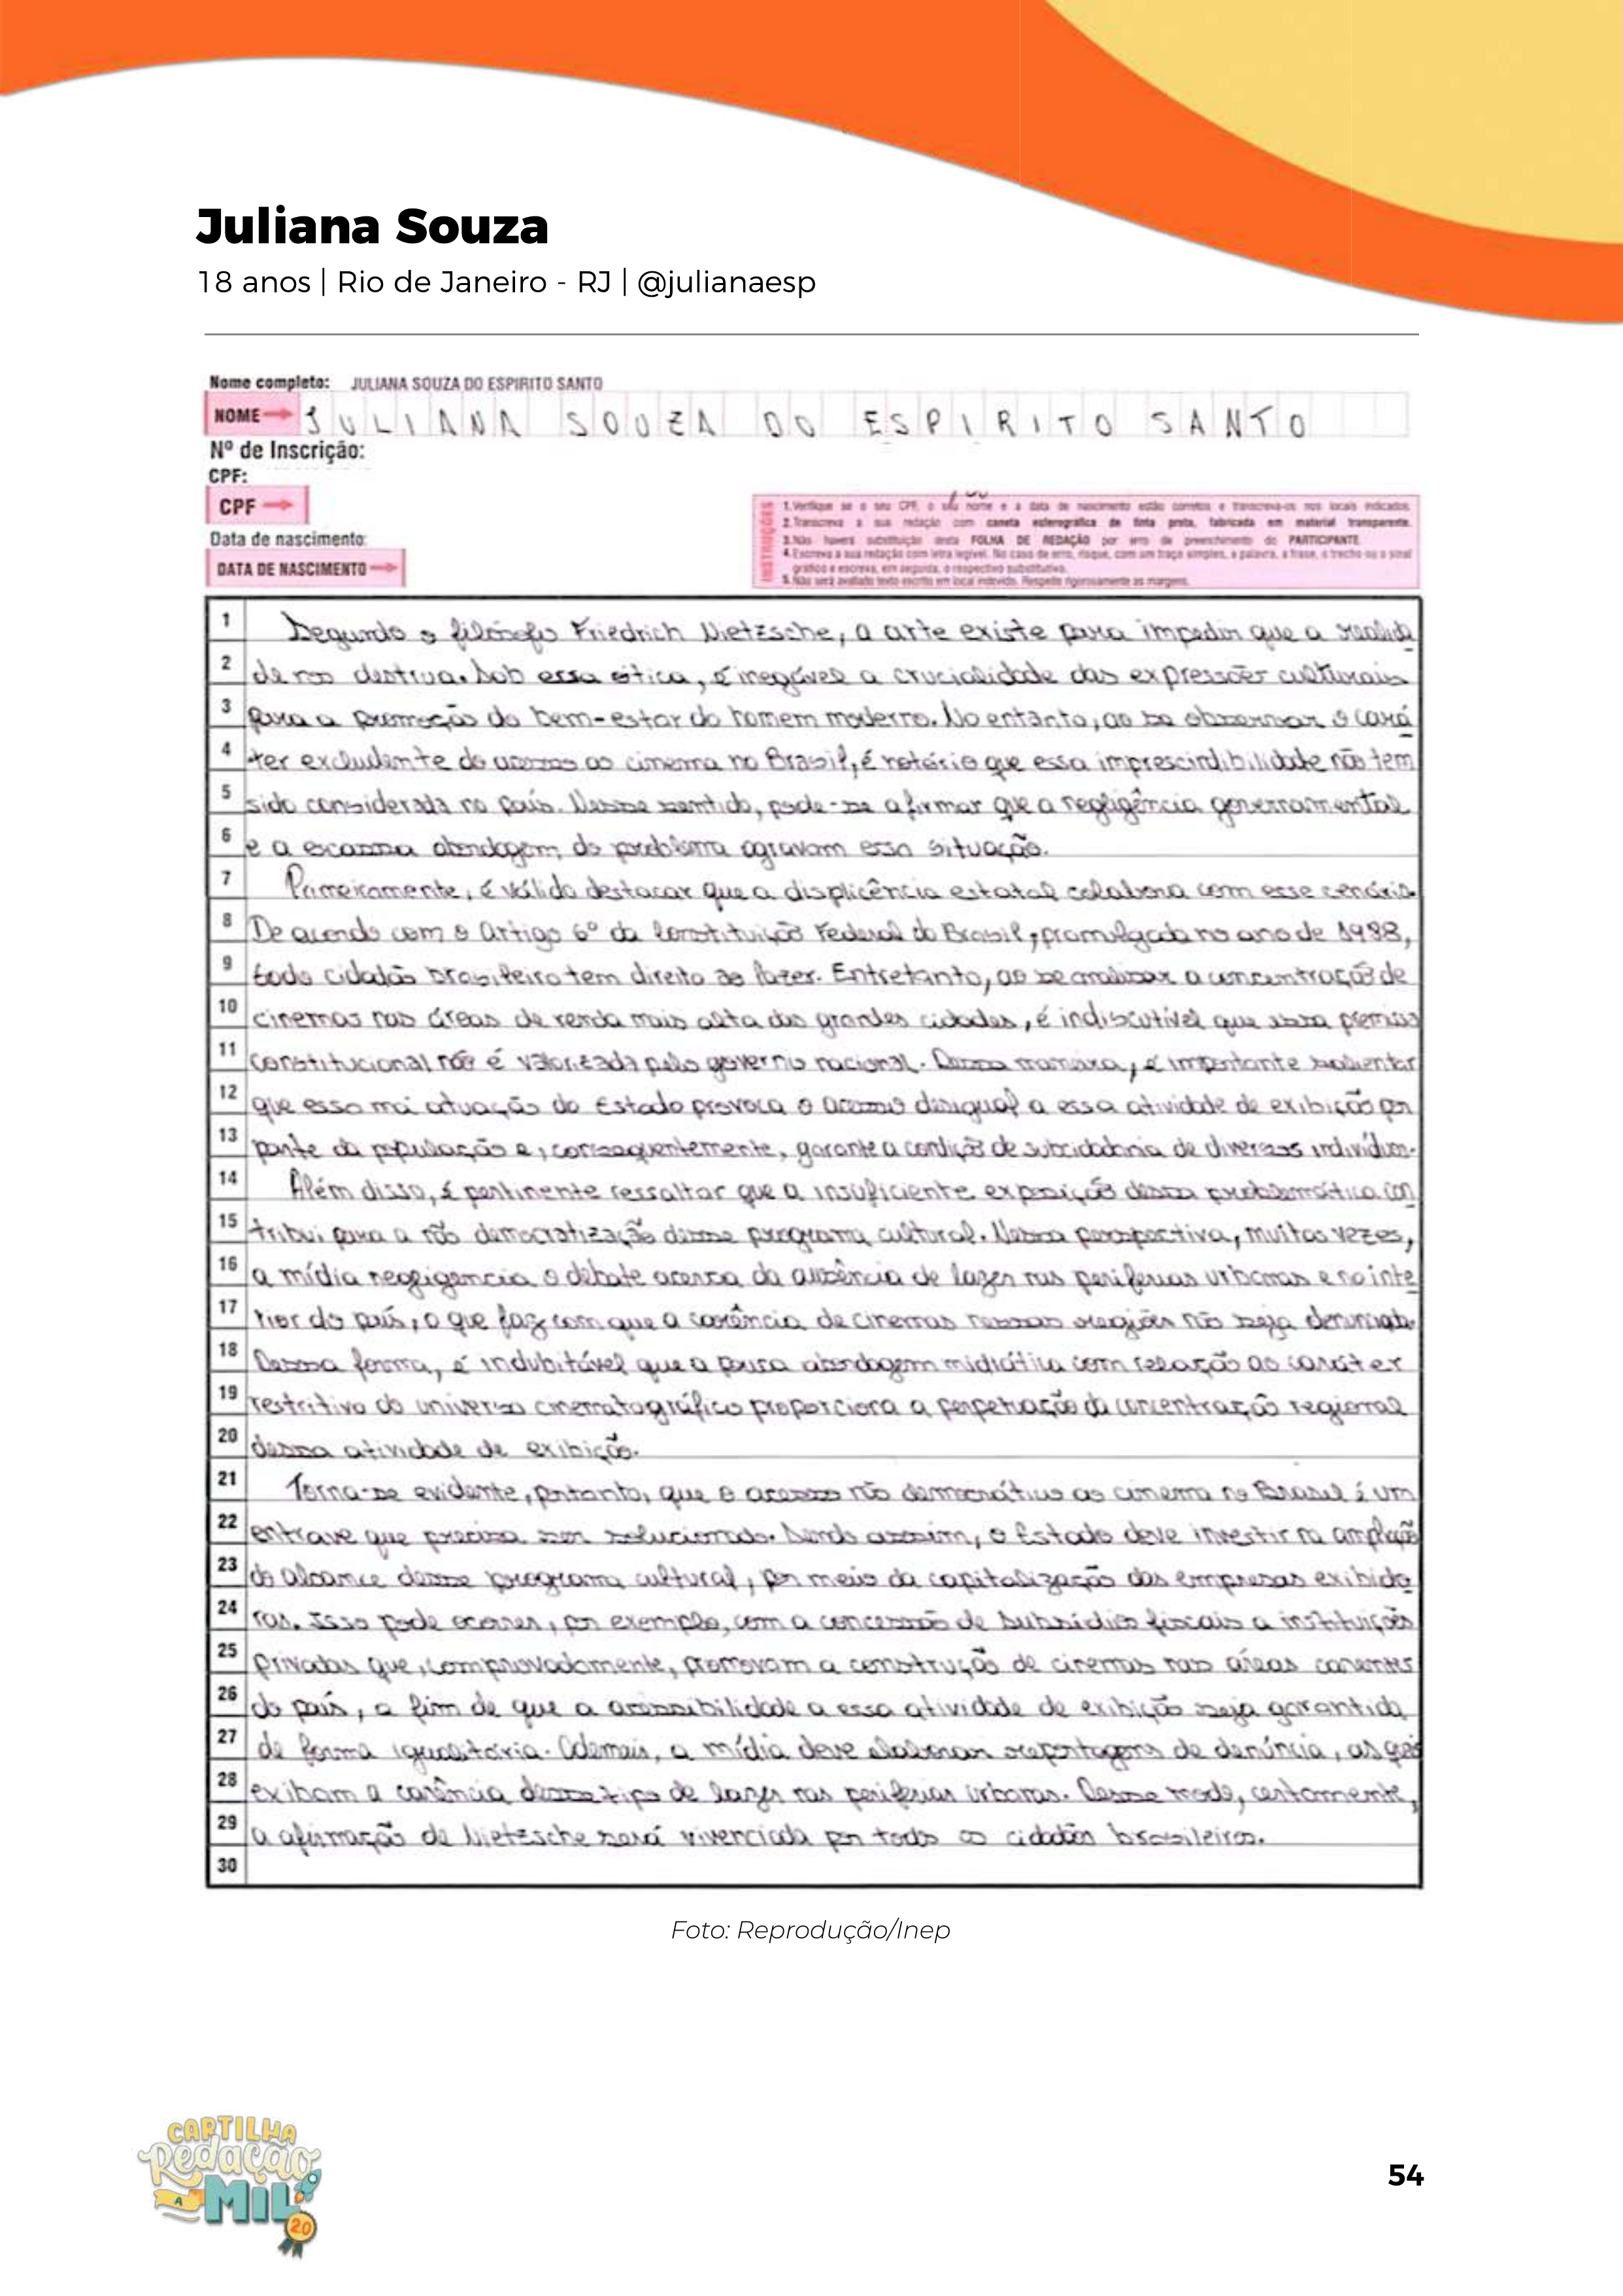 Juliana Souza
18 anos | Rio de Janeiro - RJ | @julianaesp
Nome completo: JULIANA SOUZA DO ESPIRITO SANTO
NOME JULIANA SOUZA DO ESPIRITO SANTO
Nº de Inscrição:
CPF:
CPF
Data de nascimento:
DATA DE NASCIMENTO
INSTRUÇÕES
1. Verifique se o seu CPF, o seu nome e a data de nascimento estão corretos e transcreva-os nos locais indicados.
2. Transcreva a sua redação com caneta esferográfica de tinta preta, fabricada em material transparente.
3. Não haverá substituição desta FOLHA DE REDAÇÃO por erro de preenchimento do PARTICIPANTE.
4. Escreva a sua redação com letra legível. No caso de erro, risque, com um traço simples, a palavra, a frase, o trecho ou o sinal
gráfico e escreva, em seguida, o respectivo substitutivo.
5. Não será avaliado texto escrito em local indevido. Respeite rigorosamente as margens.
1 Segundo o filósofo Friedrich Nietzsche, a arte existe para impedir que a realida
2 de nos destrua. Sob essa ótica, é inegável a crucialidade das expressões culturais
3 para a promoção do bem-estar do homem moderno. No entanto, ao se observar o cará
4 ter excludente do acesso ao cinema no Brasil, é notório que essa imprescindibilidade não tem
5 sido considerada no país. Nesse sentido, pode-se afirmar que a negligência governamental
6 e a escassa abordagem do problema agravam essa situação.
7 Primeiramente, é válido destacar que a displicência estatal colabora com esse cenário.
8 De acordo com o Artigo 6º da Constituição Federal do Brasil, promulgada no ano de 1988,
9 todo cidadão brasileiro tem direito ao lazer. Entretanto, ao se analisar a concentração de
10 cinemas nas áreas de renda mais alta das grandes cidades, é indiscutível que essa premissa
11 constitucional não é valorizada pelo governo nacional. Dessa maneira, é importante salientar
12 que essa má atuação do Estado provoca o acesso desigual a essa atividade de exibição por
13 parte da população e, consequentemente, garante a condição de subcidadania de diversos indivíduos.
14 Além disso, é pertinente ressaltar que a insuficiente exposição dessa problemática con
15 tribui para a não democratização desse programa cultural. Nessa perspectiva, muitas vezes,
16 a mídia negligencia o debate acerca da ausência de lazer nas periferias urbanas e no inte
17 rior do país, o que faz com que a carência de cinemas nessas regiões não seja denunciada.
18 Dessa forma, é indubitável que a pouca abordagem midiática com relação ao caráter
19 restritivo do universo cinematográfico proporciona a perpetuação da concentração regional
20 dessa atividade de exibição.
21 Torna-se evidente, portanto, que o acesso não democrático ao cinema no Brasil é um
22 entrave que precisa ser solucionado. Sendo assim, o Estado deve investir na ampliação
23 do alcance desse programa cultural, por meio da capitalização das empresas exibido
24 ras. Isso pode ocorrer, por exemplo, com a concessão de subsídios fiscais a instituições
25 privadas que, comprovadamente, promovam a construção de cinemas nas áreas carentes
26 do país, a fim de que a acessibilidade a essa atividade de exibição seja garantida
27 de forma igualitária. Ademais, a mídia deve elaborar reportagens de denúncia, as quais
28 exibam a carência desse tipo de lazer nas periferias urbanas. Desse modo, certamente,
29 a afirmação de Nietzsche será vivenciada por todos os cidadãos brasileiros.
30
Foto: Reprodução/Inep
CARTILHA
Redação
A MIL
2.0
54